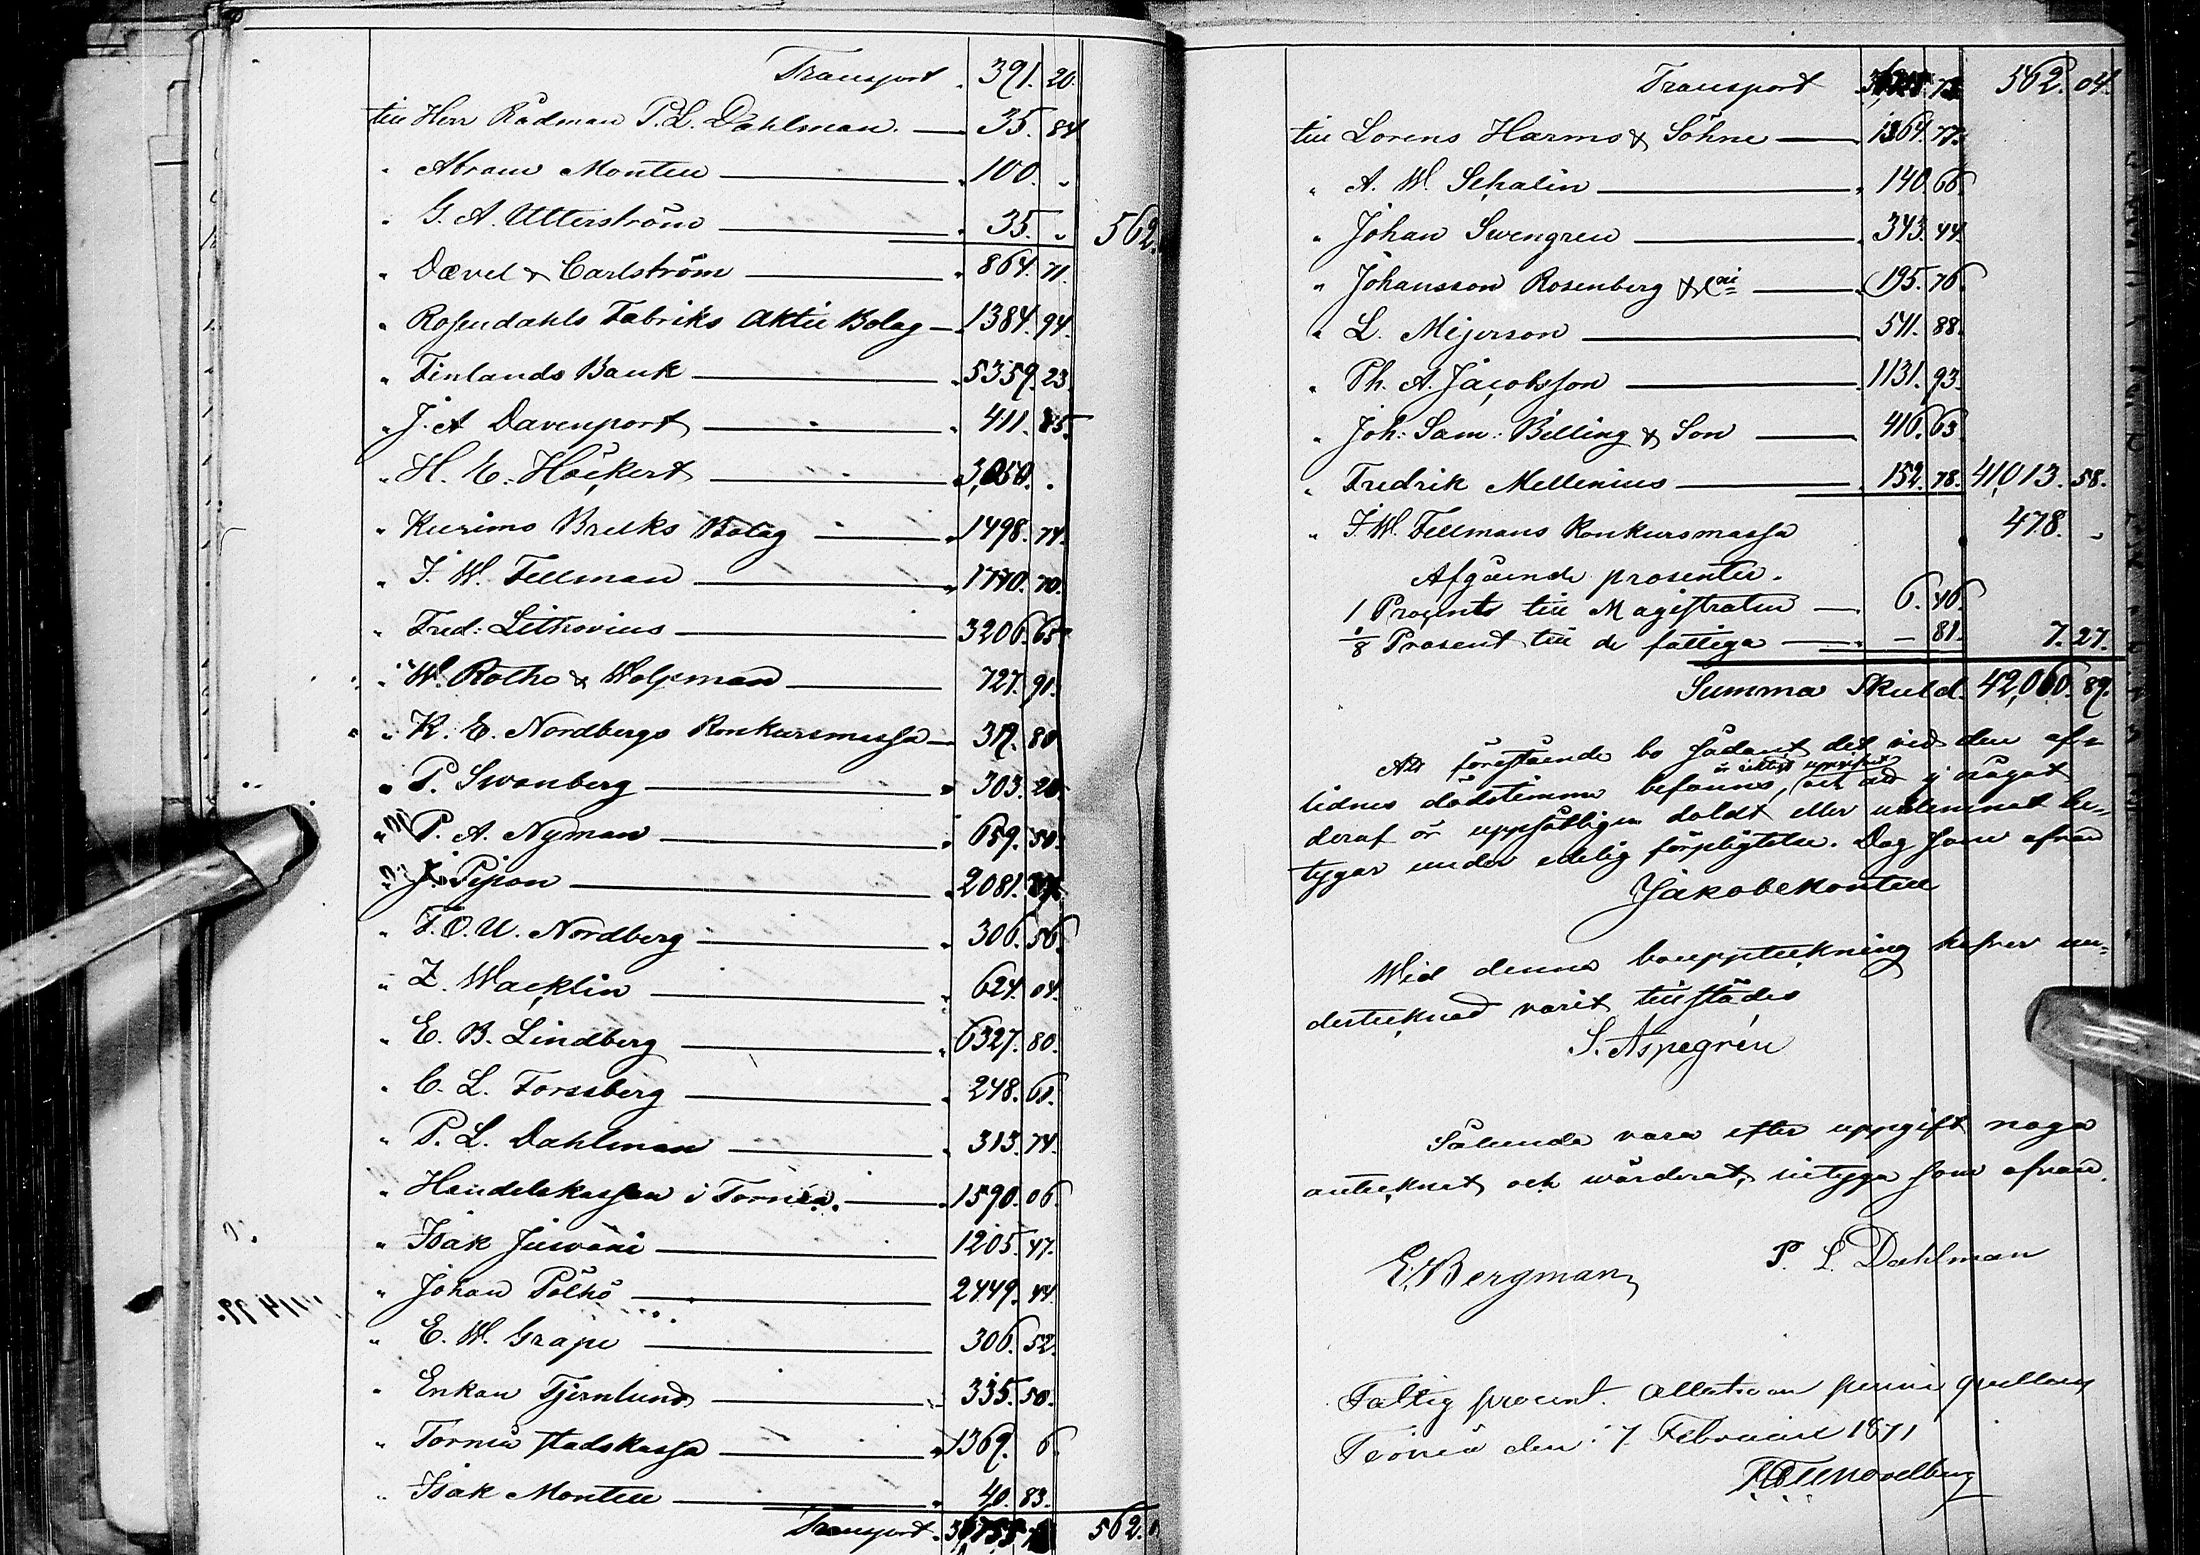 Transport . 391. 20.
till Herr Rådman P. L. Dahlman. — 35. 84
" Abram Montell — 100. "
" G. A. Utterström — 35. " 562.
" Dævel & Carlström — 864. 71.
" Rosendahls Fabriks Aktie Bolag — 1384. 94.
" Finlands Bank — 5359. 23.
" J. A Davenport — 411. 85.
" H. E. Höckert — 3,050. .
" Kurimo Bruks Bolag — 1498. 74.
" J. W. Fellman — 1770. 70.
" Fred: Lithovius — 3206. 65.
" W. Rothe & Wolsman — 727. 91.
" K. E. Nordbergs Konkursmassa — 317. 80
" P. Swanberg — 303. 20.
" P. A. Nyman — 659. 50.
" J. Pipon — 2081.
" F. O. U. Nordberg — 306. 56.
" Z. Wacklin — 624. 04.
" E. B. Lindberg — 6327. 80.
" C. L. Forssberg — 248. 61.
" P. L. Dahlman — 313. 74.
" Handelskassan i Torneå. — 1590. 06.
" Isak Jusväni — 1205. 47.
" Johan Pölhö — 2449. 44.
" E. W. Grape — 306. 52.
" Enkan Tjernlund — 335. 50.
" Torneå stadskassa — 1369. 6.
" Isak Montell — 40. 83.
Transport. 562.
Transport 562. 04.
till Lorens Harms & Söhne — 1364. 77.
" A. W. Schalin — 140. 66.
" Johan Swengren — 343. 44.
" Johansson Rosenberg & Co — 195. 76.
" L. Mejerson — 541. 88.
" Ph. A. Jacobsson — 1131. 93.
" Joh: Sam: Billing & Son — 416. 63.
" Fredrik Mellenius — 152. 78. 41,013. 58.
" J. W. Fellmans Konkursmassa 478. "
Afgående prosenter.
1 Procents till Magistraten — 6. 46.
1/8 Prosent till de fattiga — — 81. 7. 27.
Summa Skuld. 42,060. 89.
Att förestående bo sådant det vid den af-
är riktigt uppgifvet
lidnes dödstimma befanns, och att ej något
deraf är uppsåtligen doldt eller utelemnat be-
tygar under edelig förpligtelse. Dag som ofvan
Jakob Montell
Wid denna bouppteckning hafver un-
dertecknad varit tillstädes
S. Aspegrén
Sålunda vara efter uppgift noga
antecknat och värderat, intyga som ofvan.
E. Bergman P. L. Dahlman
Fattig procent. qvitteras
Torneå den 17 Februari 1871
Nordberg